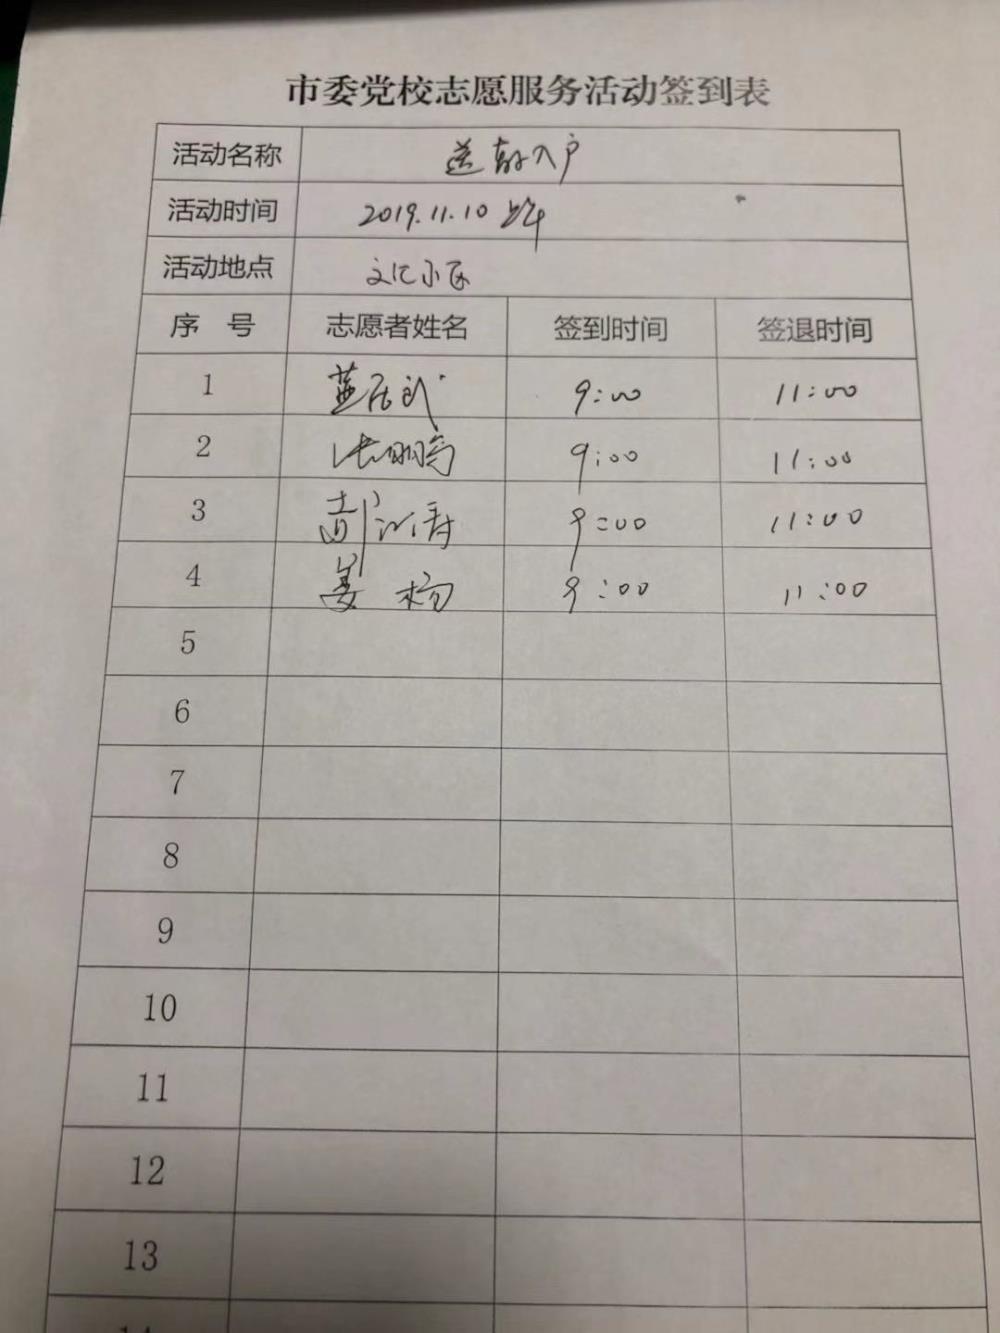 市委党校志愿服务活动签到表
活动名称 送教入户
活动时间 2019.11.10 上午
活动地点 文汇小区
序 号 志愿者姓名 签到时间 签退时间
1 9:00 11:00
2 张鹏 9:00 11:00
3 9:00 11:00
4 姜杨 9:00 11:00
5
6
7
8
9
10
11
12
13